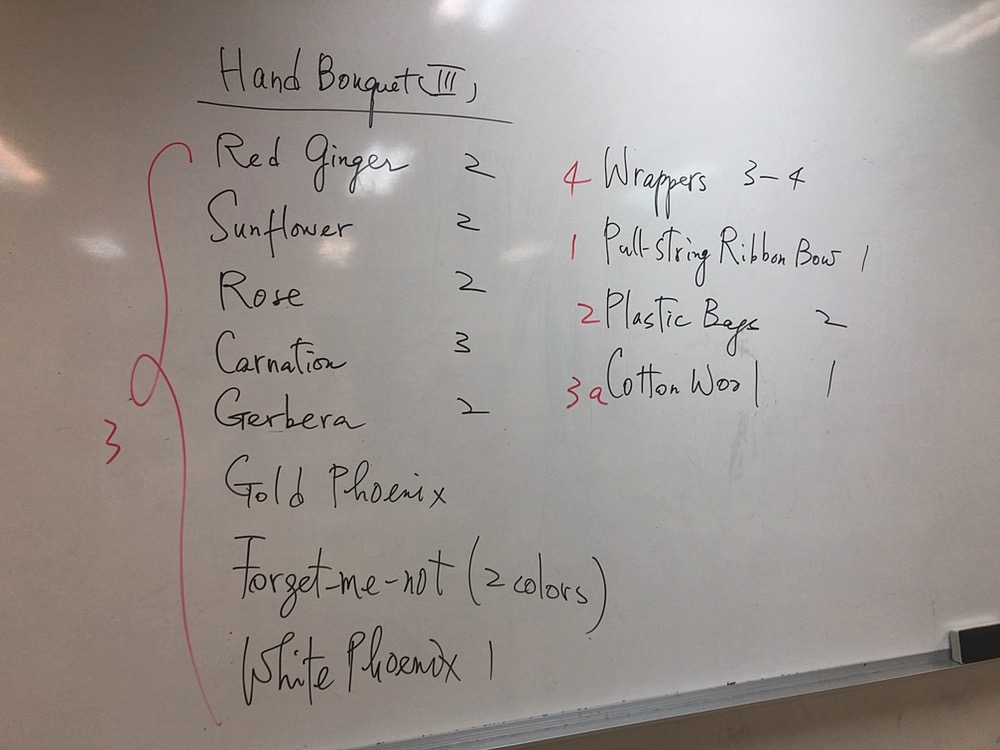 Hand Bouquet (III)
Red Ginger 2
Sunflower 2
Rose 2
Carnation 3
Gerbera 2
Gold Phoenix
Forget-me-not (2 colors)
White Phoenix 1
3
4 Wrappers 3-4
1 Pull-string Ribbon Bow 1
2 Plastic Bags 2
3a Cotton Wool 1